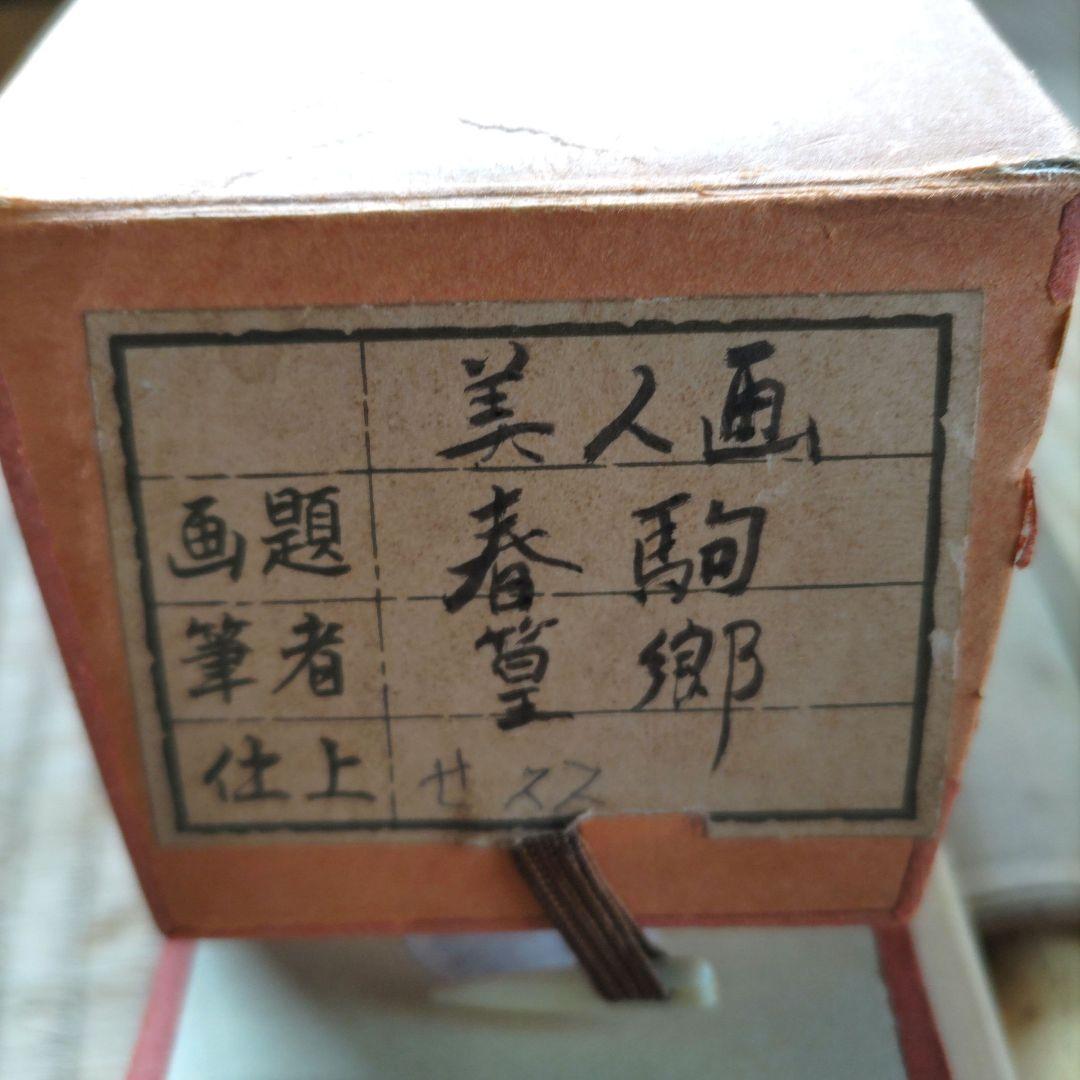 美人画
画題 春駒
筆者 篁郷
仕上